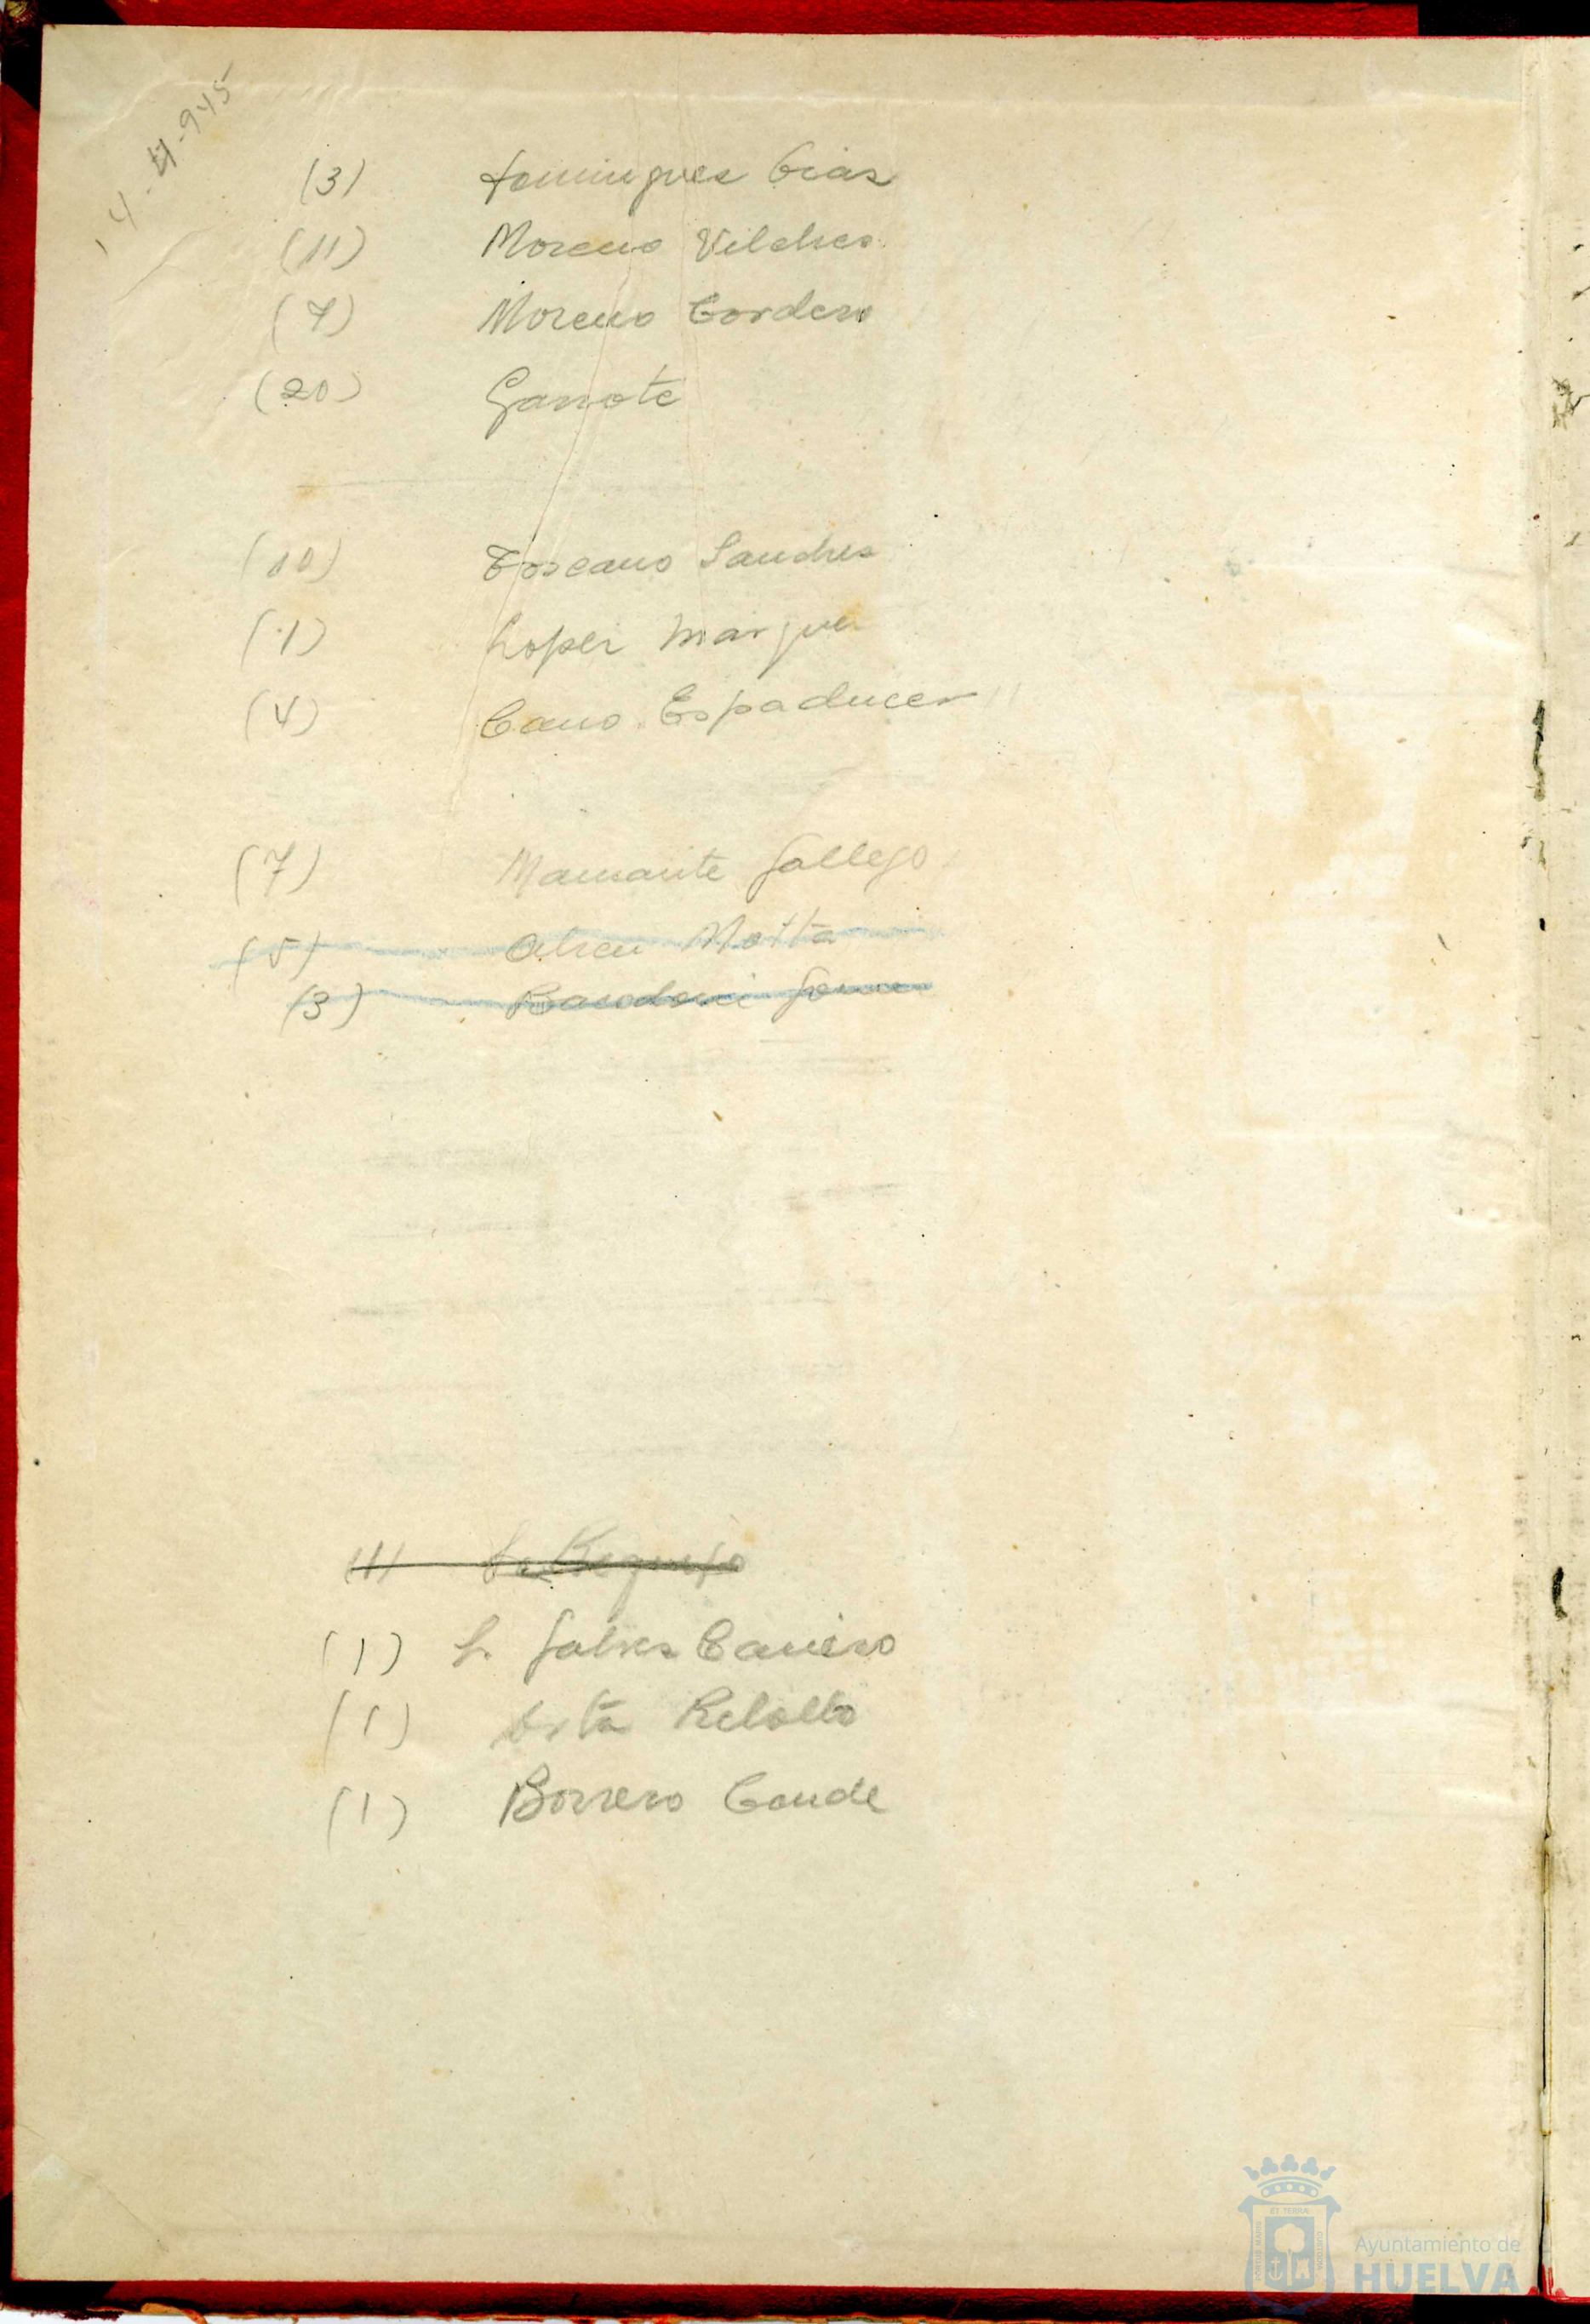 14-4-945
(3) Dominguez Crias
(11) Moreno Vilches
(7) Moreno Cordero
(20) Garrote
(10) Toscano Sanches
(1) Lopez Marquez
(4) Cano Espaducer
(7) Mamante Gallego
(5) Abreu Motta
(3)
(1) Requejo
(1) L. Galvez Caniero
(1) Orta Rebollo
(1) Borrero Conde
Ayuntamiento de
HUELVA